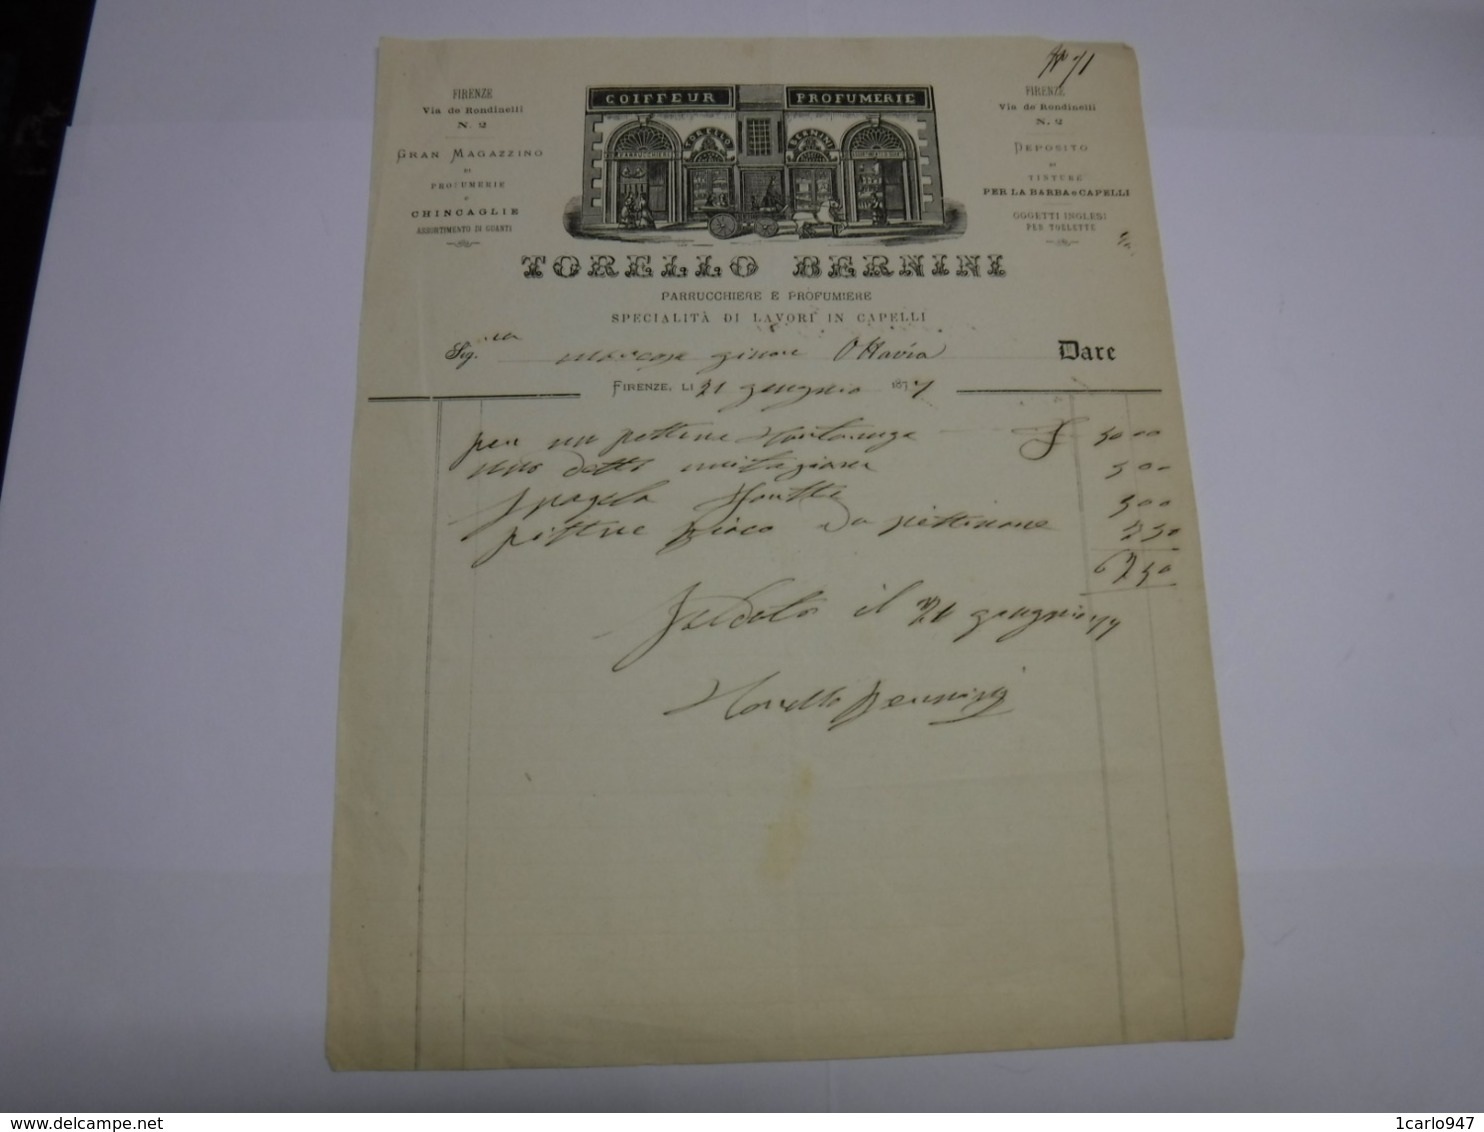 N° 71
FIRENZE
Via de Rondinelli
N. 2
GRAN MAGAZZINO
DI
PROFUMERIE
E
CHINCAGLIE
ASSORTIMENTO DI GUANTI
COIFFEUR PROFUMERIE
PARRUCCHIERE TORELLO BERNINI
FIRENZE
Via de Rondinelli
N. 2
DEPOSITO
DI
TINTURE
PER LA BARBA e CAPELLI
OGGETTI INGLESI
PER TOELETTE
TORELLO BERNINI
PARRUCCHIERE E PROFUMIERE
SPECIALITÀ DI LAVORI IN CAPELLI
Sig. Ottavia Dare
FIRENZE, LI 21 1877
per un pettine 50 00
uno detto imitazione 5 00
5 00
pettine da pettinare 2 50
62 50
Saldato il 21 77
Torello Bernini
delcampe.net
1carlo947